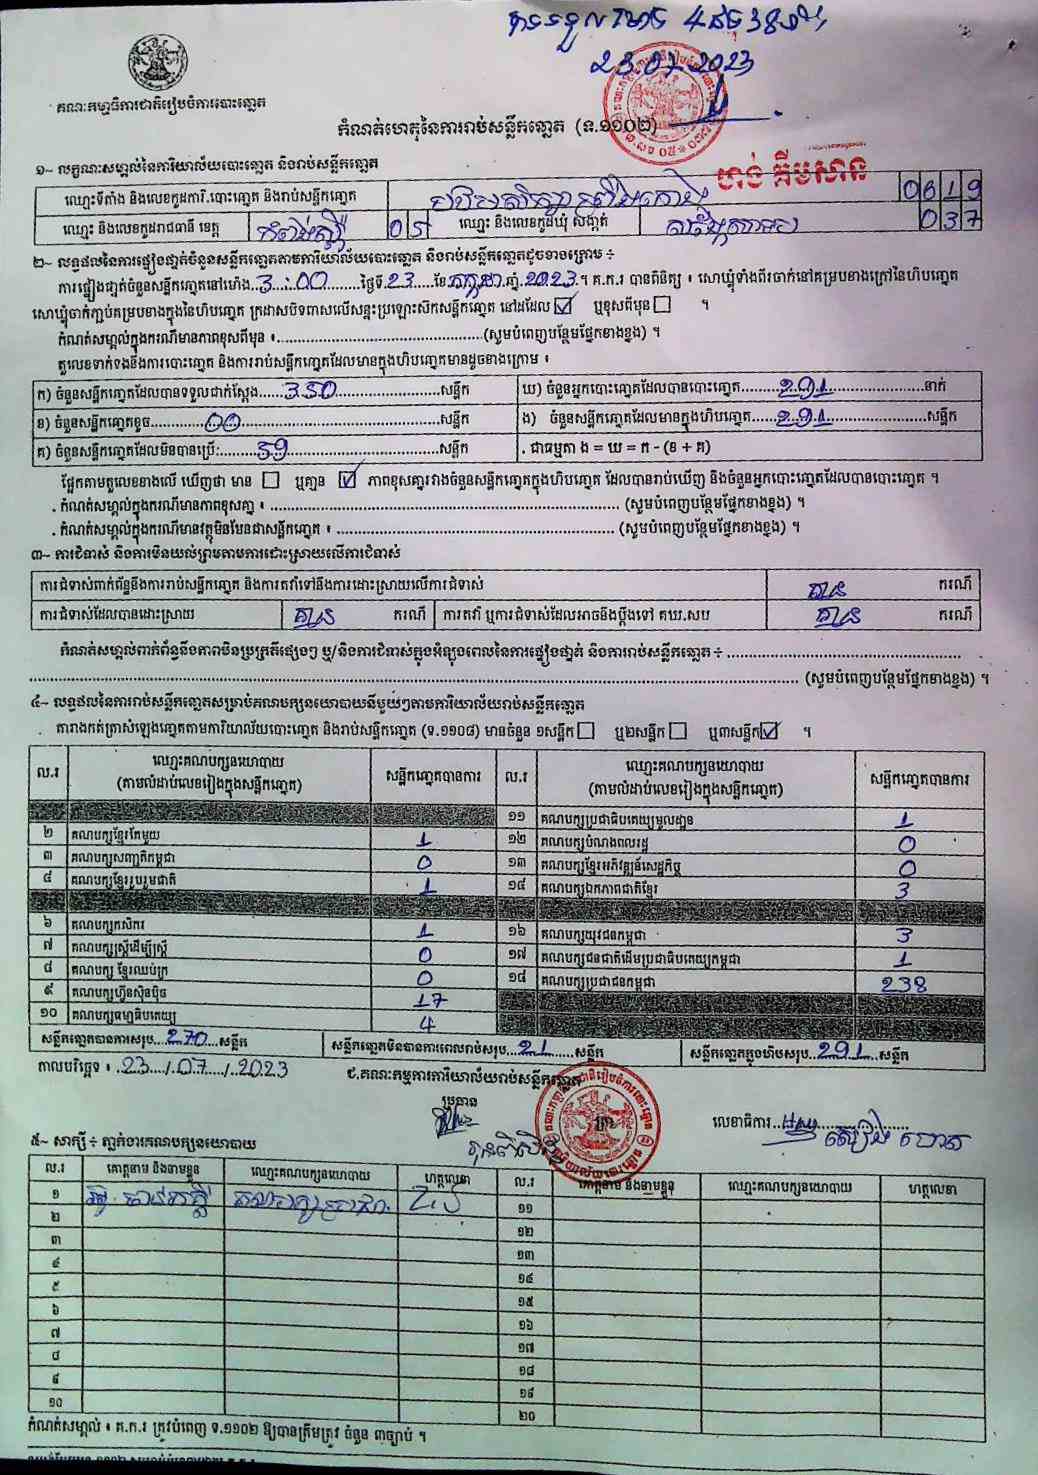 23.07.2023
គណៈកម្មាធិការជាតិរៀបចំការបោះឆ្នោត
កំណត់ហេតុនៃការរាប់សន្លឹកឆ្នោត (ទ.១១០២)
១~ លក្ខណៈសម្គាល់នៃការិយាល័យបោះឆ្នោត និងរាប់សន្លឹកឆ្នោត
ហង់ គឹមសាន
ឈ្មោះទីតាំង និងលេខកូដការិ.បោះឆ្នោត និងរាប់សន្លឹកឆ្នោត 0619
ឈ្មោះ និងលេខកូដរាជធានី ខេត្ត កំពង់ស្ពឺ 05 ឈ្មោះ និងលេខកូដឃុំ សង្កាត់ 037
២~ លទ្ធផលនៃការផ្ទៀងផ្ទាត់ចំនួនសន្លឹកឆ្នោតតាមការិយាល័យបោះឆ្នោត និងរាប់សន្លឹកឆ្នោតដូចខាងក្រោម ៖
ការផ្ទៀងផ្ទាត់ចំនួនសន្លឹកឆ្នោតនៅម៉ោង 3:00 ថ្ងៃទី 23 ខែ កក្កដា ឆ្នាំ 2023 ។ គ.ក.រ បានពិនិត្យ ៖ សោឃ្មុំទាំងពីរចាក់នៅគម្របខាងក្រៅនៃហិបឆ្នោត
សោឃ្មុំចាក់ភ្ជាប់គម្របខាងក្នុងនៃហិបឆ្នោត ក្រដាសបិទពាសលើសន្ទះប្រឡោះស៊កសន្លឹកឆ្នោត នៅដដែល ☑ ឬខុសពីមុន ☐ ។
កំណត់សម្គាល់ក្នុងករណីមានភាពខុសពីមុន ៖ (សូមបំពេញបន្ថែមផ្នែកខាងខ្នង) ។
តួលេខទាក់ទងនឹងការបោះឆ្នោត និងការរាប់សន្លឹកឆ្នោតដែលមានក្នុងហិបឆ្នោតមានដូចខាងក្រោម ៖
ក) ចំនួនសន្លឹកឆ្នោតដែលបានទទួលជាក់ស្តែង 350 សន្លឹក ឃ) ចំនួនអ្នកបោះឆ្នោតដែលបានបោះឆ្នោត 291 នាក់
ខ) ចំនួនសន្លឹកឆ្នោតខូច 00 សន្លឹក ង) ចំនួនសន្លឹកឆ្នោតដែលមានក្នុងហិបឆ្នោត 291 សន្លឹក
គ) ចំនួនសន្លឹកឆ្នោតដែលមិនបានប្រើ: 59 សន្លឹក . ជាធម្មតា ង = ឃ = ក - (ខ + គ)
ផ្អែកតាមតួលេខខាងលើ ឃើញថា មាន ☐ ឬគ្មាន ☑ ភាពខុសគ្នារវាងចំនួនសន្លឹកឆ្នោតក្នុងហិបឆ្នោត ដែលបានរាប់ឃើញ និងចំនួនអ្នកបោះឆ្នោតដែលបានបោះឆ្នោត ។
. កំណត់សម្គាល់ក្នុងករណីមានភាពខុសគ្នា ៖ (សូមបំពេញបន្ថែមផ្នែកខាងខ្នង) ។
. កំណត់សម្គាល់ក្នុងករណីមានវត្ថុមិនមែនជាសន្លឹកឆ្នោត ៖ (សូមបំពេញបន្ថែមផ្នែកខាងខ្នង) ។
៣~ ការជំទាស់ និងការមិនយល់ព្រមតាមការដោះស្រាយលើការជំទាស់
ការជំទាស់ពាក់ព័ន្ធនឹងការរាប់សន្លឹកឆ្នោត និងការតវ៉ាទៅនឹងការដោះស្រាយលើការជំទាស់ គ្មាន ករណី
ការជំទាស់ដែលបានដោះស្រាយ គ្មាន ករណី ការតវ៉ា ឬការជំទាស់ដែលអាចនឹងប្តឹងទៅ គឃ.សប គ្មាន ករណី
កំណត់សម្គាល់ពាក់ព័ន្ធនឹងភាពមិនប្រក្រតីផ្សេងៗ ឬ/និងការជំទាស់ក្នុងអំឡុងពេលនៃការផ្ទៀងផ្ទាត់ និងការរាប់សន្លឹកឆ្នោត ៖
(សូមបំពេញបន្ថែមផ្នែកខាងខ្នង) ។
៤~ លទ្ធផលនៃការរាប់សន្លឹកឆ្នោតសម្រាប់គណបក្សនយោបាយនីមួយៗតាមការិយាល័យរាប់សន្លឹកឆ្នោត
តារាងកត់ត្រាសំឡេងឆ្នោតតាមការិយាល័យបោះឆ្នោត និងរាប់សន្លឹកឆ្នោត (ទ.១១០៨) មានចំនួន ១សន្លឹក ☐ ឬ២សន្លឹក ☐ ឬ៣សន្លឹក ☑ ។
ល.រ ឈ្មោះគណបក្សនយោបាយ (តាមលំដាប់លេខរៀងក្នុងសន្លឹកឆ្នោត) សន្លឹកឆ្នោតបានការ ល.រ ឈ្មោះគណបក្សនយោបាយ (តាមលំដាប់លេខរៀងក្នុងសន្លឹកឆ្នោត) សន្លឹកឆ្នោតបានការ
១១ គណបក្សប្រជាធិបតេយ្យមូលដ្ឋាន 1
២ គណបក្សខ្មែរតែមួយ 1 ១២ គណបក្សបំណងពលរដ្ឋ 0
៣ គណបក្សសញ្ជាតិកម្ពុជា 0 ១៣ គណបក្សខ្មែរអភិវឌ្ឍន៍សេដ្ឋកិច្ច 0
៤ គណបក្សខ្មែររួបរួមជាតិ 1 ១៤ គណបក្សឯកភាពជាតិខ្មែរ 3
៦ គណបក្សកសិករ 1 ១៦ គណបក្សយុវជនកម្ពុជា 3
៧ គណបក្សស្ត្រីដើម្បីស្ត្រី 0 ១៧ គណបក្សជនជាតិដើមប្រជាធិបតេយ្យកម្ពុជា 1
៨ គណបក្ស ខ្មែរឈប់ក្រ 0 ១៨ គណបក្សប្រជាជនកម្ពុជា 238
៩ គណបក្សហ៊្វុនស៊ិនប៉ិច 17
១០ គណបក្សធម្មាធិបតេយ្យ 4
សន្លឹកឆ្នោតបានការសរុប 270 សន្លឹក សន្លឹកឆ្នោតមិនបានការពេលរាប់សរុប 21 សន្លឹក សន្លឹកឆ្នោតក្នុងហិបសរុប 291 សន្លឹក
កាលបរិច្ឆេទ ៖ 23/07/2023 ជ.គណៈកម្មការការិយាល័យរាប់សន្លឹកឆ្នោត
ប្រធាន
លេខាធិការ
៥~ សាក្សី ៖ ភ្នាក់ងារគណបក្សនយោបាយ
ល.រ គោត្តនាម និងនាមខ្លួន ឈ្មោះគណបក្សនយោបាយ ហត្ថលេខា ល.រ គោត្តនាម និងនាមខ្លួន ឈ្មោះគណបក្សនយោបាយ ហត្ថលេខា
១ ១១
២ ១២
៣ ១៣
៤ ១៤
៥ ១៥
៦ ១៦
៧ ១៧
៨ ១៨
៩ ១៩
១០ ២០
កំណត់សម្គាល់ ៖ គ.ក.រ ត្រូវបំពេញ ទ.១១០២ ឱ្យបានត្រឹមត្រូវ ចំនួន ៣ច្បាប់ ។